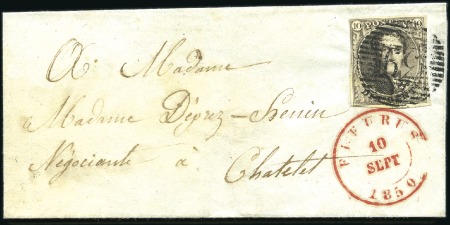 POSTES
A Madame
Madame Déprez-Henin
Négociante à
Chatelet
FLEURUS
10
SEPT
1850